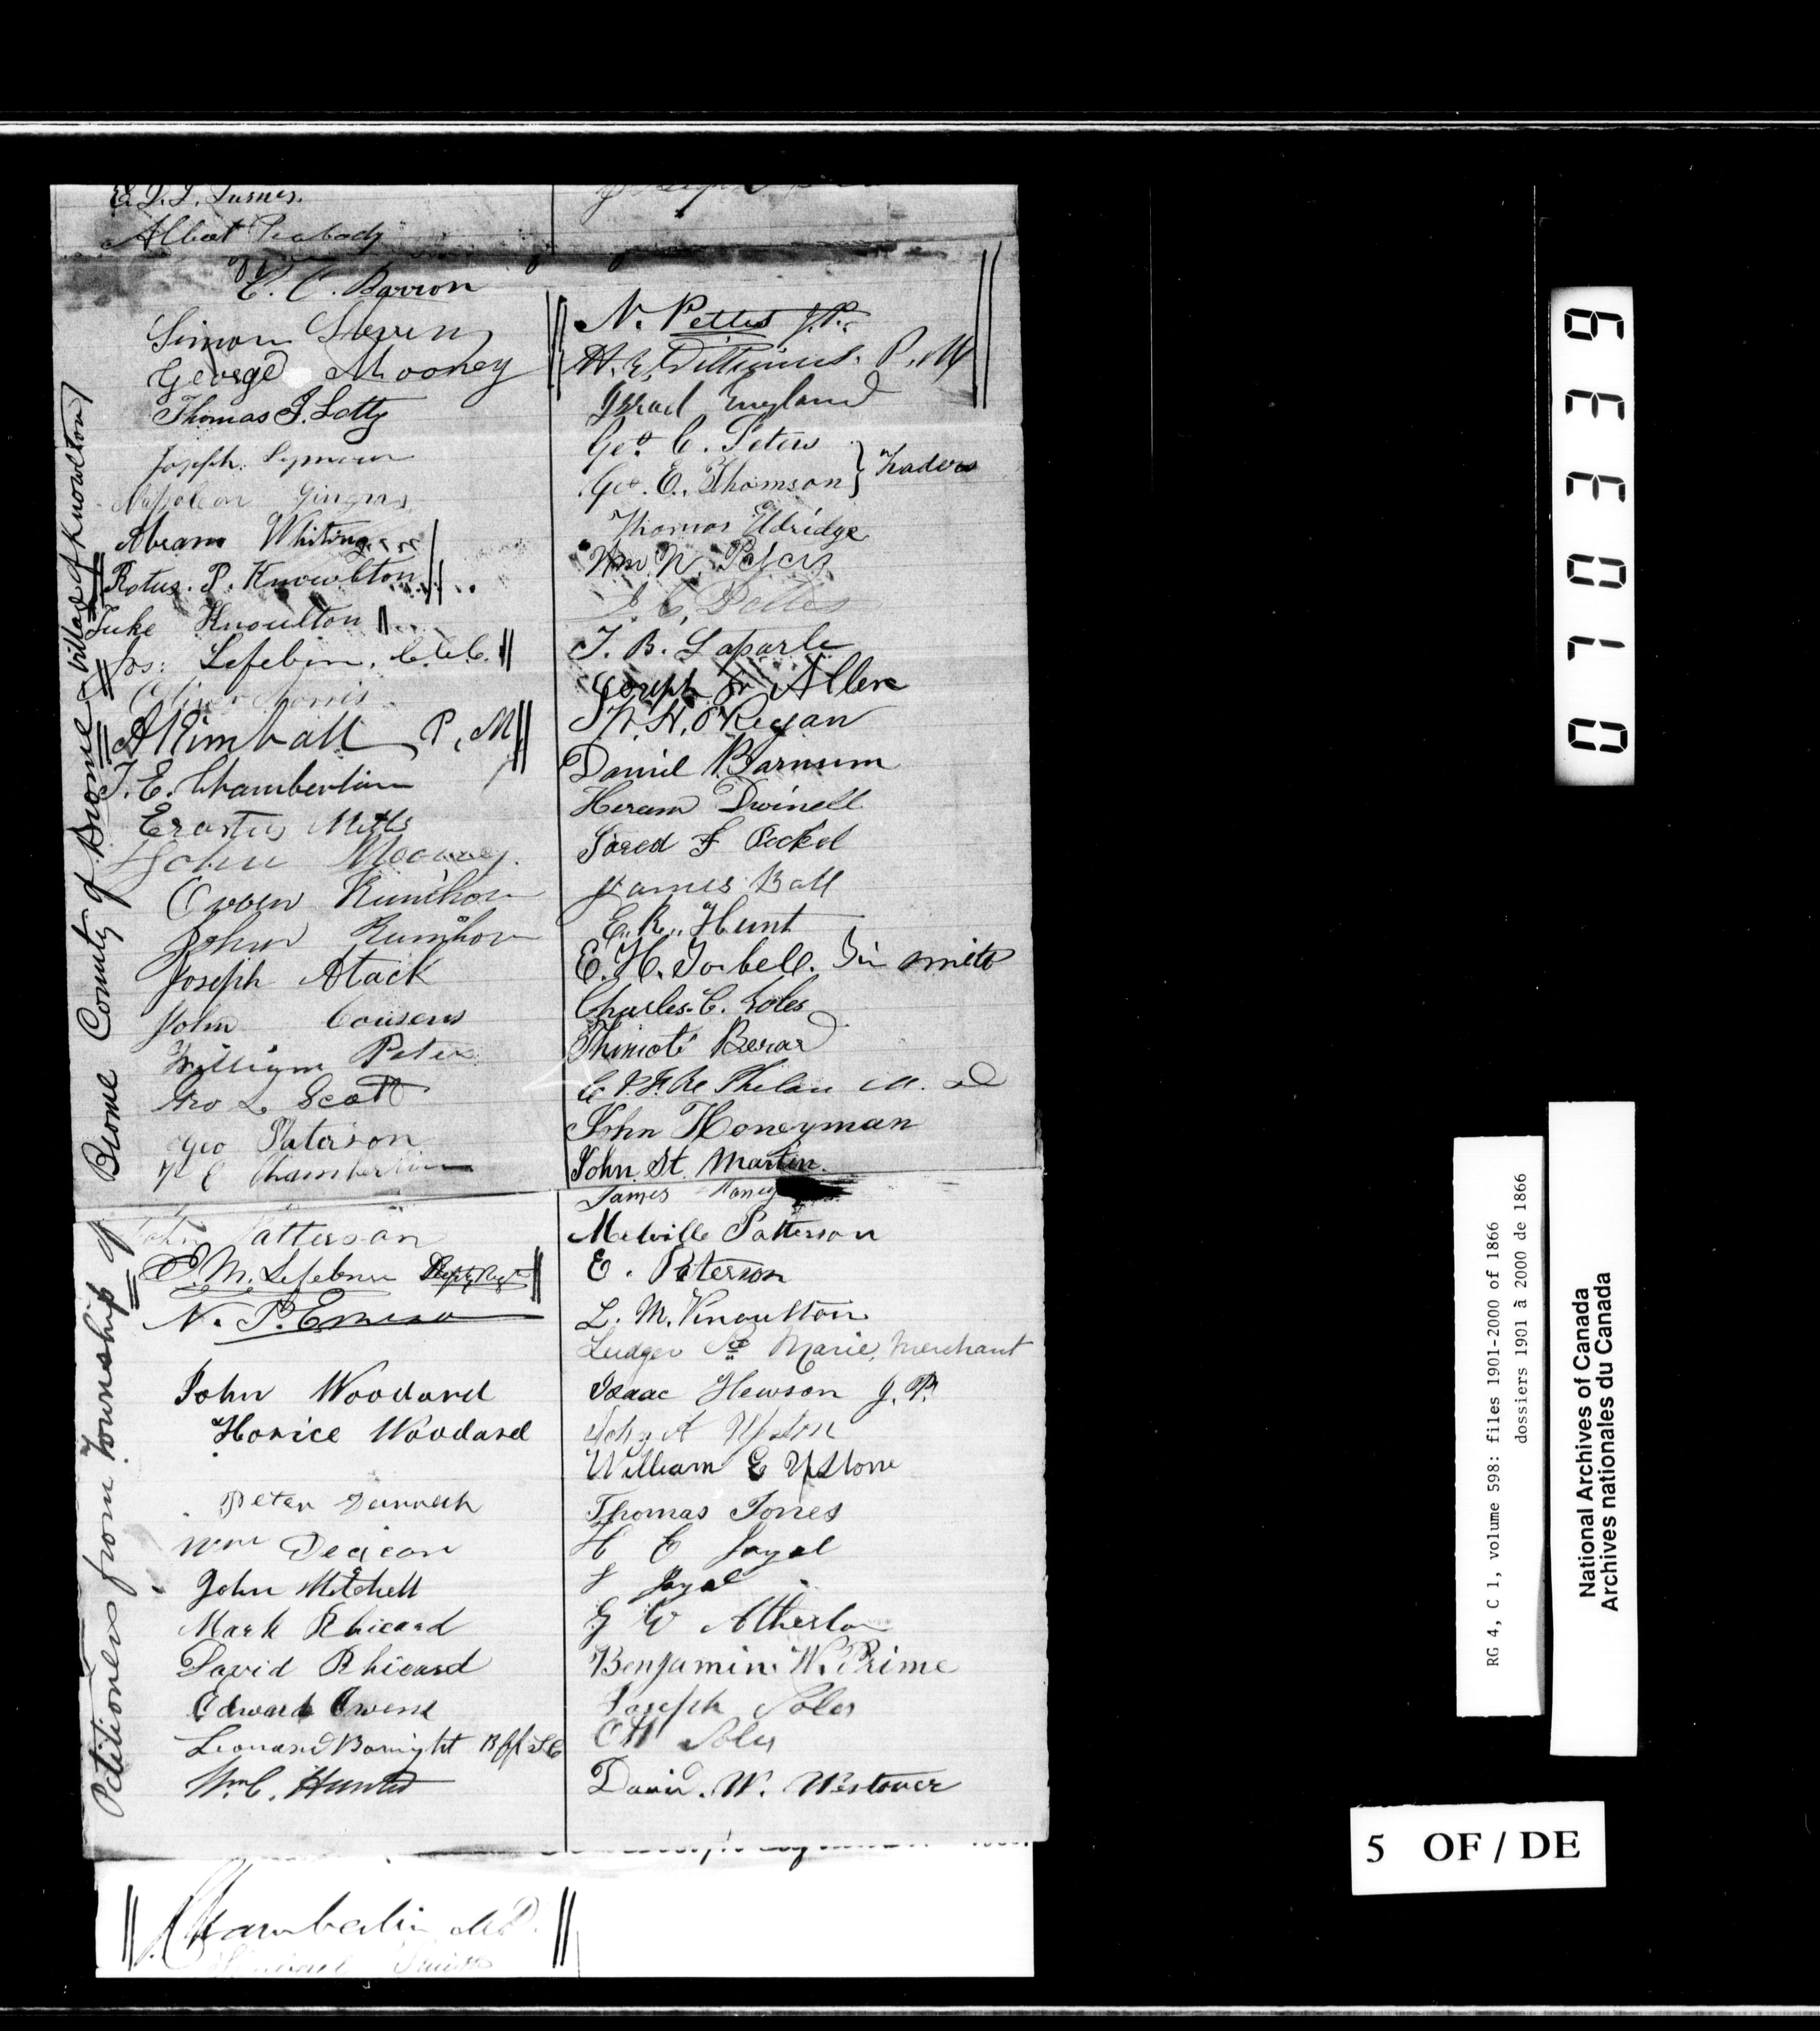 E. T. T. Turner.
Albert Peabody
E. C. Barron
Simon
George Mooney
Thomas J. Letty
Joseph Seymour
Napoleon Gingras
Abram Whiting
Rotus. P. Knowlton
Luke Knoulton
Jos: Lefebvre, C.C.C.
Oliver Norris
A Kimball P. M
T. E. Chamberlin
Erastus Mills
John Mooney.
Owen
John
Joseph Atack
John Cousens
William Peters
Geo L Scott
Geo Paterson
Chamberlin
John Patterson
E. M. Lefebvre Depty Regr
N. P. Emerso
John Woodard
Horice Woodard
Peter
Wm Deacon
John Mitchell
Mark Rhicard
David Rhicard
Edward Owens
Leonard Boright Bff S C
Wm C. Hunter
N. Pettes J.P.
H. E. P. M
Israel England
Geo C. Peters
Geo. E. Thomson } Traders
Thomas Eldridge
Wm. N. Peters
J. C. Pettes
T. B. Laparle
Joseph Allen
W. H. O'Regan
Daniel Barnum
Heram Dwinell
Jared F Peckel
James Ball
E. R. Hunt
E. H. Tarbell. Tin smith
Charles C. Soles
Thimoté Berard
Phelan M. D
John Honeyman
John St. Martin.
James
Melville Patterson
E. Paterson
L. M. Knoulton
Ludger Ste Marie, Merchant
Isaac Hewson J. P.
John A
William E Upstone
Thomas Jones
H E Jayal
F Jayal
G W Atherton
Benjamin W. Prime
Joseph Soles
C H Soles
David. W. Westover
Chamberlin M.D.
Petitioners from Township of Brome County of Brome (village of Knowlton)
071 0339
RG 4, C 1, volume 598: files 1901-2000 of 1866
dossiers 1901 à 2000 de 1866
National Archives of Canada
Archives nationales du Canada
5 OF / DE